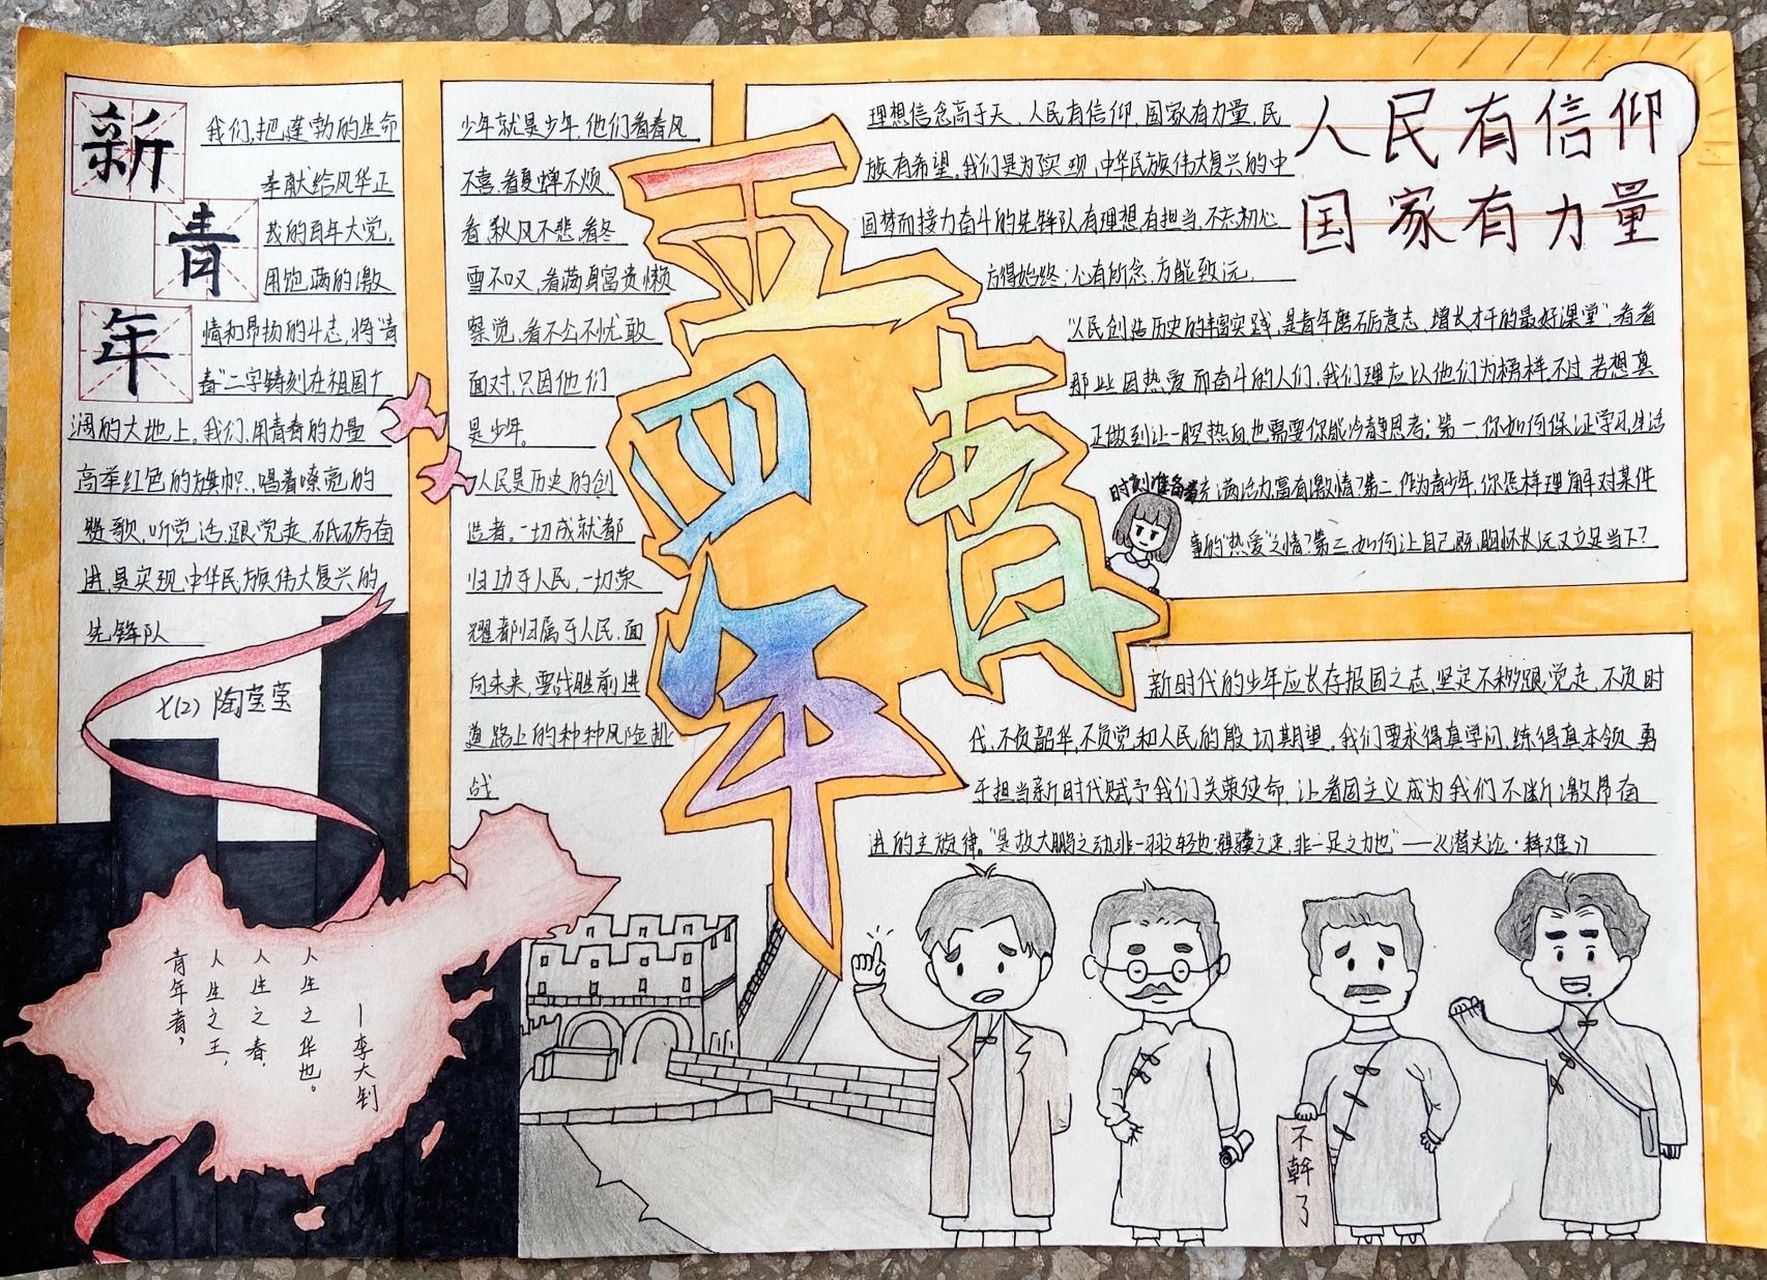 新
青
年
我们,把蓬勃的生命
奉献给风华正
茂的百年大党,
用饱满的激
情和昂扬的斗志,将"青
春"二字铸刻在祖国广
阔的大地上。我们,用青春的力量
高举红色的旗帜,唱着嘹亮的
赞歌,听党话、跟党走、砥砺奋
进,是实现中华民族伟大复兴的
先锋队
七(2) 陶莹莹
青年者,
人生之王,
人生之春,
人生之华也。
—李大钊
少年就是少年,他们看春风
不喜,看夏蝉不烦,
看秋风不悲,看冬
雪不叹,看满身富贵懒
察觉,看不公不忧敢
面对,只因他们
是少年。
人民是历史的创
造者。一切成就都
归功于人民,一切荣
耀都归属于人民。面
向未来,要战胜前进
道路上的种种风险挑
战
五
四
青
年
人民有信仰
国家有力量
理想信念高于天、人民有信仰,国家有力量,民
族有希望。我们是为实现,中华民族伟大复兴的中
国梦而接力奋斗的先锋队有理想,有担当,不忘初心
方得始终;心有所念,方能致远。
"人民创造历史的丰富实践,是青年磨砺意志、增长才干的最好课堂",看着
那些因热爱而奋斗的人们,我们理应以他们为榜样。不过若想真
正做到让一腔热血也需要你能冷静思考:第一,你如何保证学习,生活
充满活力,富有激情?第二,作为青少年,你怎样理解对某件
事的"热爱"之情?第三,如何让自己既胸怀长远又立足当下?
时刻准备着
新时代的少年应长存报国之志,坚定不移跟党走,不负时
代、不负韶华,不负党和人民的殷切期望。我们要求得真学问,练得真本领,勇
于担当新时代赋予我们关荣使命,让爱国主义成为我们不断激昂奋
进的主旋律。"是故大鹏之动非一羽之轻也;骐骥之速,非一足之力也"——《潜夫论·释难》
不幹了